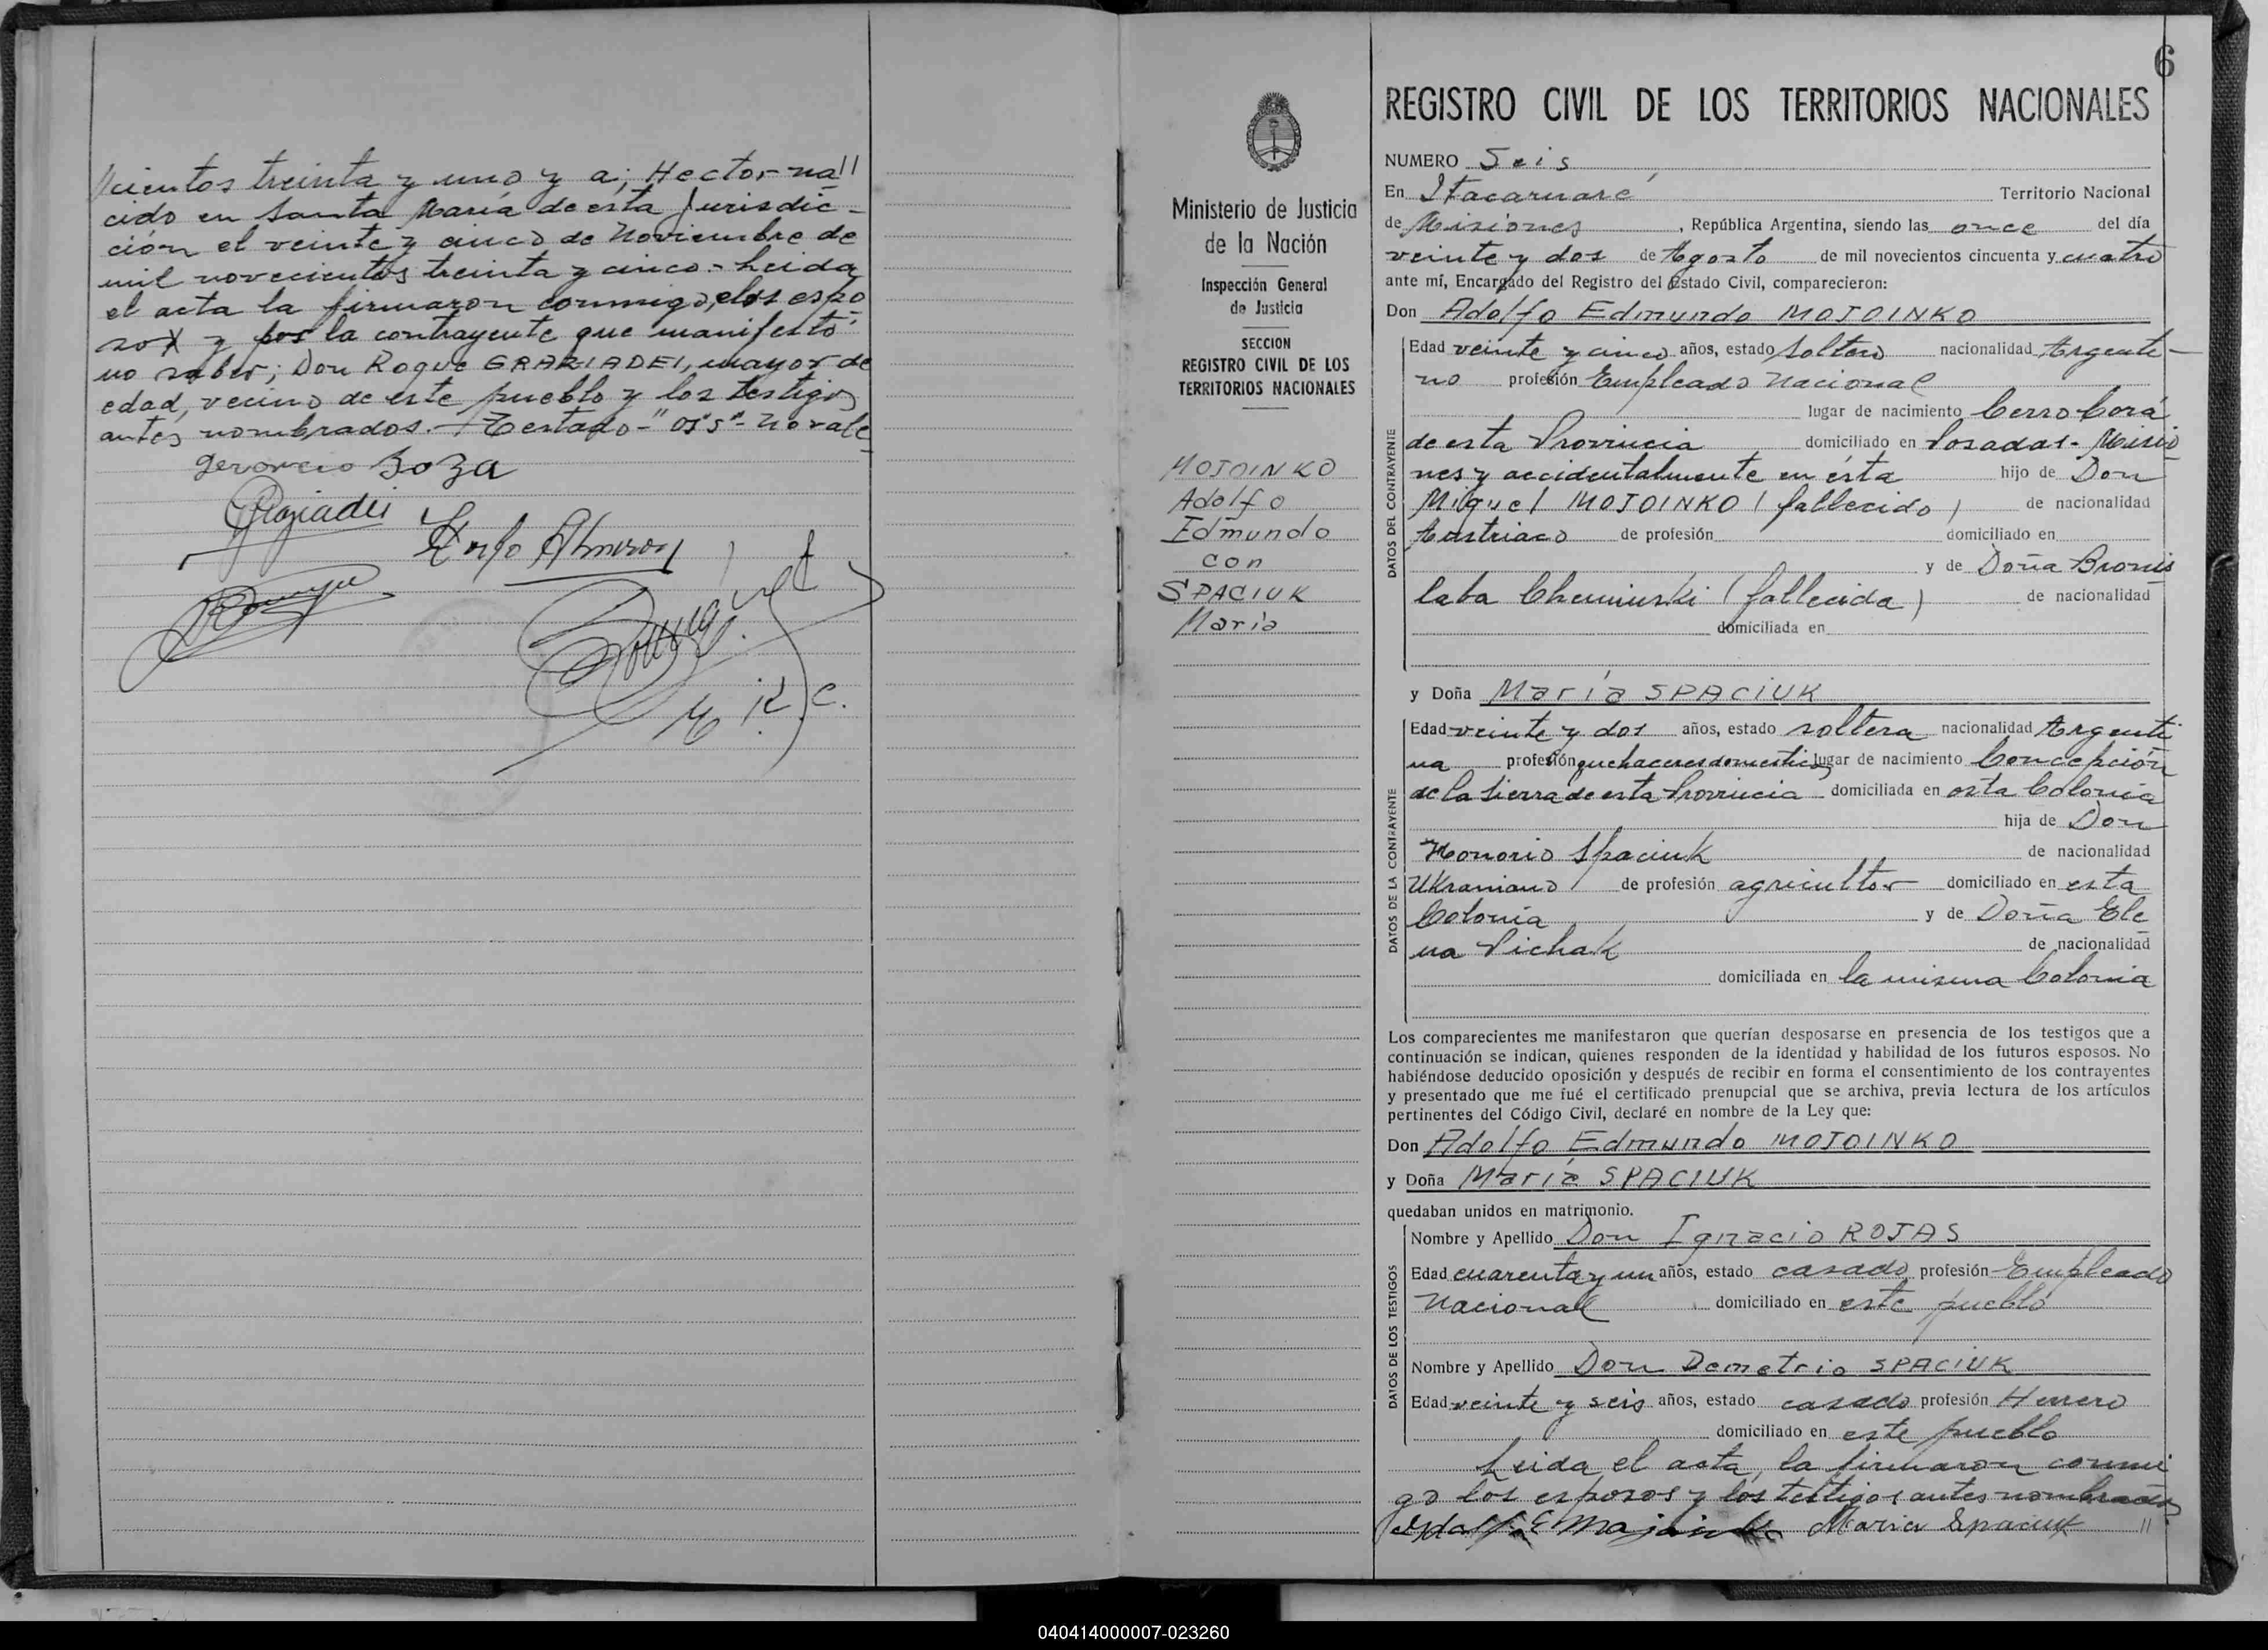 cientos treinta y uno y a; Hector-na//
cido en Santa María de esta Jurisdic-
ción el veinte y cinco de Noviembre de
mil novecientos treinta y cinco.- Leida
el acta la firmaron conmigo, el espo
so y por la contrayente que manifestó
no saber; Don Roque GRAZIADEI, mayor de
edad, vecino de este pueblo y los testigos
antes nombrados.- Testado- "os s"- No vale
Soza
Graziadei
6
REGISTRO CIVIL DE LOS TERRITORIOS NACIONALES
NUMERO Seis
En Itacaruaré Territorio Nacional
de Misiones, República Argentina, siendo las once del día
veinte y dos de Agosto de mil novecientos cincuenta y cuatro
ante mí, Encargado del Registro del Estado Civil, comparecieron:
Don Adolfo Edmundo MOJOINKO
DATOS DEL CONTRAYENTE
Edad veinte y cinco años, estado soltero nacionalidad Argenti-
no profesión Empleado Nacional
lugar de nacimiento Cerro Corá
de esta Provincia domiciliado en Posadas- Misio
nes y accidentalmente en ésta hijo de Don
Miguel MOJOINKO (fallecido) de nacionalidad
Austriaco de profesión domiciliado en
y de Doña Bronis
laba (fallecida) de nacionalidad
domiciliada en
y Doña María SPACIUK
DATOS DE LA CONTRAYENTE
Edad veinte y dos años, estado soltera nacionalidad Argenti
na profesión quehaceres domesticos lugar de nacimiento Concepción
de la Sierra de esta Provincia domiciliada en esta Colonia
hija de Don
Honorio Spaciuk de nacionalidad
Ukraniano de profesión agricultor domiciliado en esta
Colonia y de Doña Ele
na Pichak de nacionalidad
domiciliada en la misma Colonia
Los comparecientes me manifestaron que querían desposarse en presencia de los testigos que a
continuación se indican, quienes responden de la identidad y habilidad de los futuros esposos. No
habiéndose deducido oposición y después de recibir en forma el consentimiento de los contrayentes
y presentado que me fué el certificado prenupcial que se archiva, previa lectura de los artículos
pertinentes del Código Civil, declaré en nombre de la Ley que:
Don Adolfo Edmundo MOJOINKO
y Doña María SPACIUK
quedaban unidos en matrimonio.
DATOS DE LOS TESTIGOS
Nombre y Apellido Don Ignacio ROJAS
Edad cuarenta y un años, estado casado profesión Empleado
Nacional domiciliado en este pueblo
Nombre y Apellido Don Demetrio SPACIUK
Edad veinte y seis años, estado casado profesión Herrero
domiciliado en este pueblo
Leida el acta, la firmaron conmi
go los esposos y los testigos antes nombrados
Adolfo E Majoinko Maria Spaciuk //
Ministerio de Justicia
de la Nación
Inspección General
de Justicia
SECCION
REGISTRO CIVIL DE LOS
TERRITORIOS NACIONALES
MOJOINKO
Adolfo
Edmundo
con
SPACIUK
María
040414000007-023260